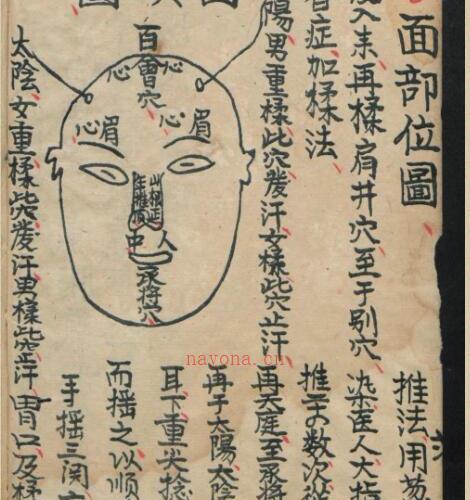 面部位圖
推法用
入未再揉肩井穴至于别穴
染医人大指
症加揉法
推云数次從
陽男重揉此穴发汗女揉此穴止汗
再天庭至承将
百會穴
心 心
眉心 眉心
山根
年壽
人中
承将穴
再于太陽太陰
耳下重尖捻
而摇之以順
手摇三関
太陰女重揉此穴发汗男揉此穴止汗
胃口及揉
nayona.cn